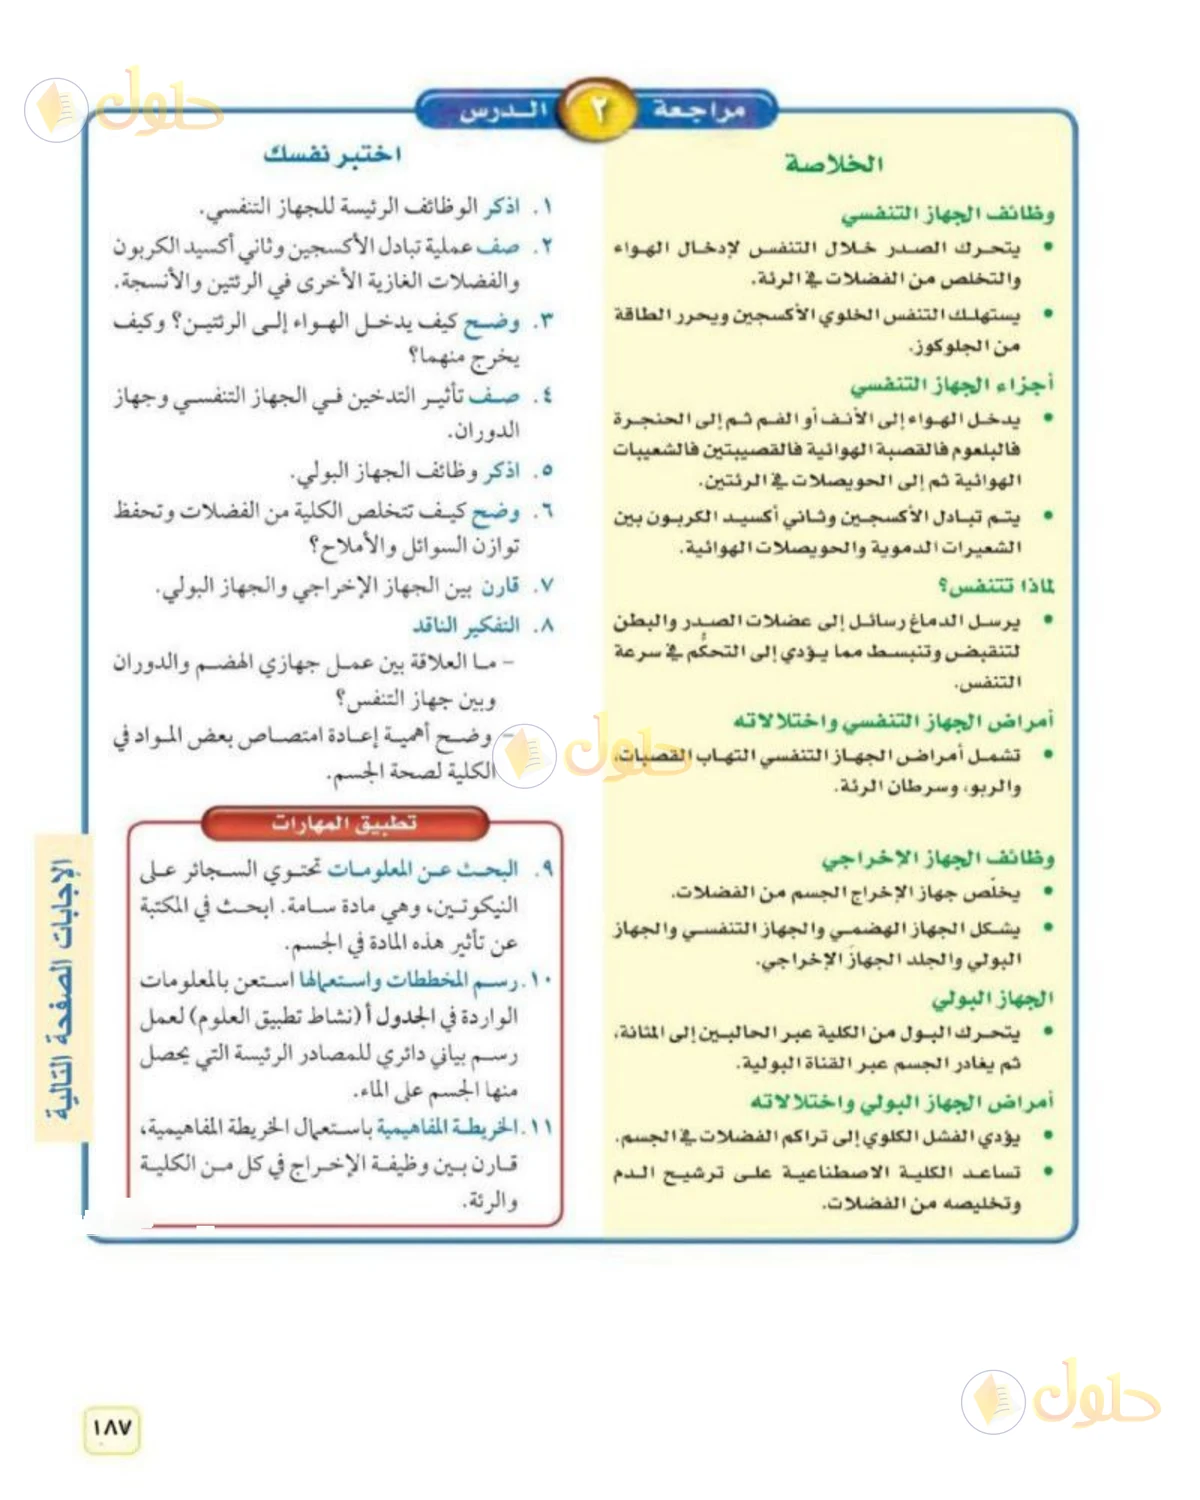 حلول
مراجعة ٢ الدرس
الخلاصة
وظائف الجهاز التنفسي
• يتحرك الصدر خلال التنفس لإدخال الهواء
والتخلص من الفضلات في الرئة.
• يستهلك التنفس الخلوي الأكسجين ويحرر الطاقة
من الجلوكوز.
أجزاء الجهاز التنفسي
• يدخل الهواء إلى الأنف أو الفم ثم إلى الحنجرة
فالبلعوم فالقصبة الهوائية فالقصيبتين فالشعيبات
الهوائية ثم إلى الحويصلات في الرئتين.
• يتم تبادل الأكسجين وثاني أكسيد الكربون بين
الشعيرات الدموية والحويصلات الهوائية.
لماذا تتنفس؟
• يرسل الدماغ رسائل إلى عضلات الصدر والبطن
لتنقبض وتنبسط مما يؤدي إلى التحكُّم في سرعة
التنفس.
أمراض الجهاز التنفسي واختلالاته
• تشمل أمراض الجهاز التنفسي التهاب القصبات،
والربو، وسرطان الرئة.
وظائف الجهاز الإخراجي
• يخلّص جهاز الإخراج الجسم من الفضلات.
• يشكل الجهاز الهضمي والجهاز التنفسي والجهاز
البولي والجلد الجهازَ الإخراجي.
الجهاز البولي
• يتحرك البول من الكلية عبر الحالبين إلى المثانة،
ثم يغادر الجسم عبر القناة البولية.
أمراض الجهاز البولي واختلالاته
• يؤدي الفشل الكلوي إلى تراكم الفضلات في الجسم.
• تساعد الكلية الاصطناعية على ترشيح الدم
وتخليصه من الفضلات.
اختبر نفسك
١. اذكر الوظائف الرئيسة للجهاز التنفسي.
٢. صف عملية تبادل الأكسجين وثاني أكسيد الكربون
والفضلات الغازية الأخرى في الرئتين والأنسجة.
٣. وضح كيف يدخل الهواء إلى الرئتين؟ وكيف
يخرج منهما؟
٤. صف تأثير التدخين في الجهاز التنفسي وجهاز
الدوران.
٥. اذكر وظائف الجهاز البولي.
٦. وضح كيف تتخلص الكلية من الفضلات وتحفظ
توازن السوائل والأملاح؟
٧. قارن بين الجهاز الإخراجي والجهاز البولي.
٨. التفكير الناقد
- ما العلاقة بين عمل جهازي الهضم والدوران
وبين جهاز التنفس؟
- وضح أهمية إعادة امتصاص بعض المواد في
الكلية لصحة الجسم.
حلول
تطبيق المهارات
٩. البحث عن المعلومات تحتوي السجائر على
النيكوتين، وهي مادة سامة. ابحث في المكتبة
عن تأثير هذه المادة في الجسم.
١٠. رسم المخططات واستعمالها استعن بالمعلومات
الواردة في الجدول أ (نشاط تطبيق العلوم) لعمل
رسم بياني دائري للمصادر الرئيسة التي يحصل
منها الجسم على الماء.
١١. الخريطة المفاهيمية باستعمال الخريطة المفاهيمية،
قارن بين وظيفة الإخراج في كل من الكلية
والرئة.
الإجابات الصفحة التالية
حلول
١٨٧